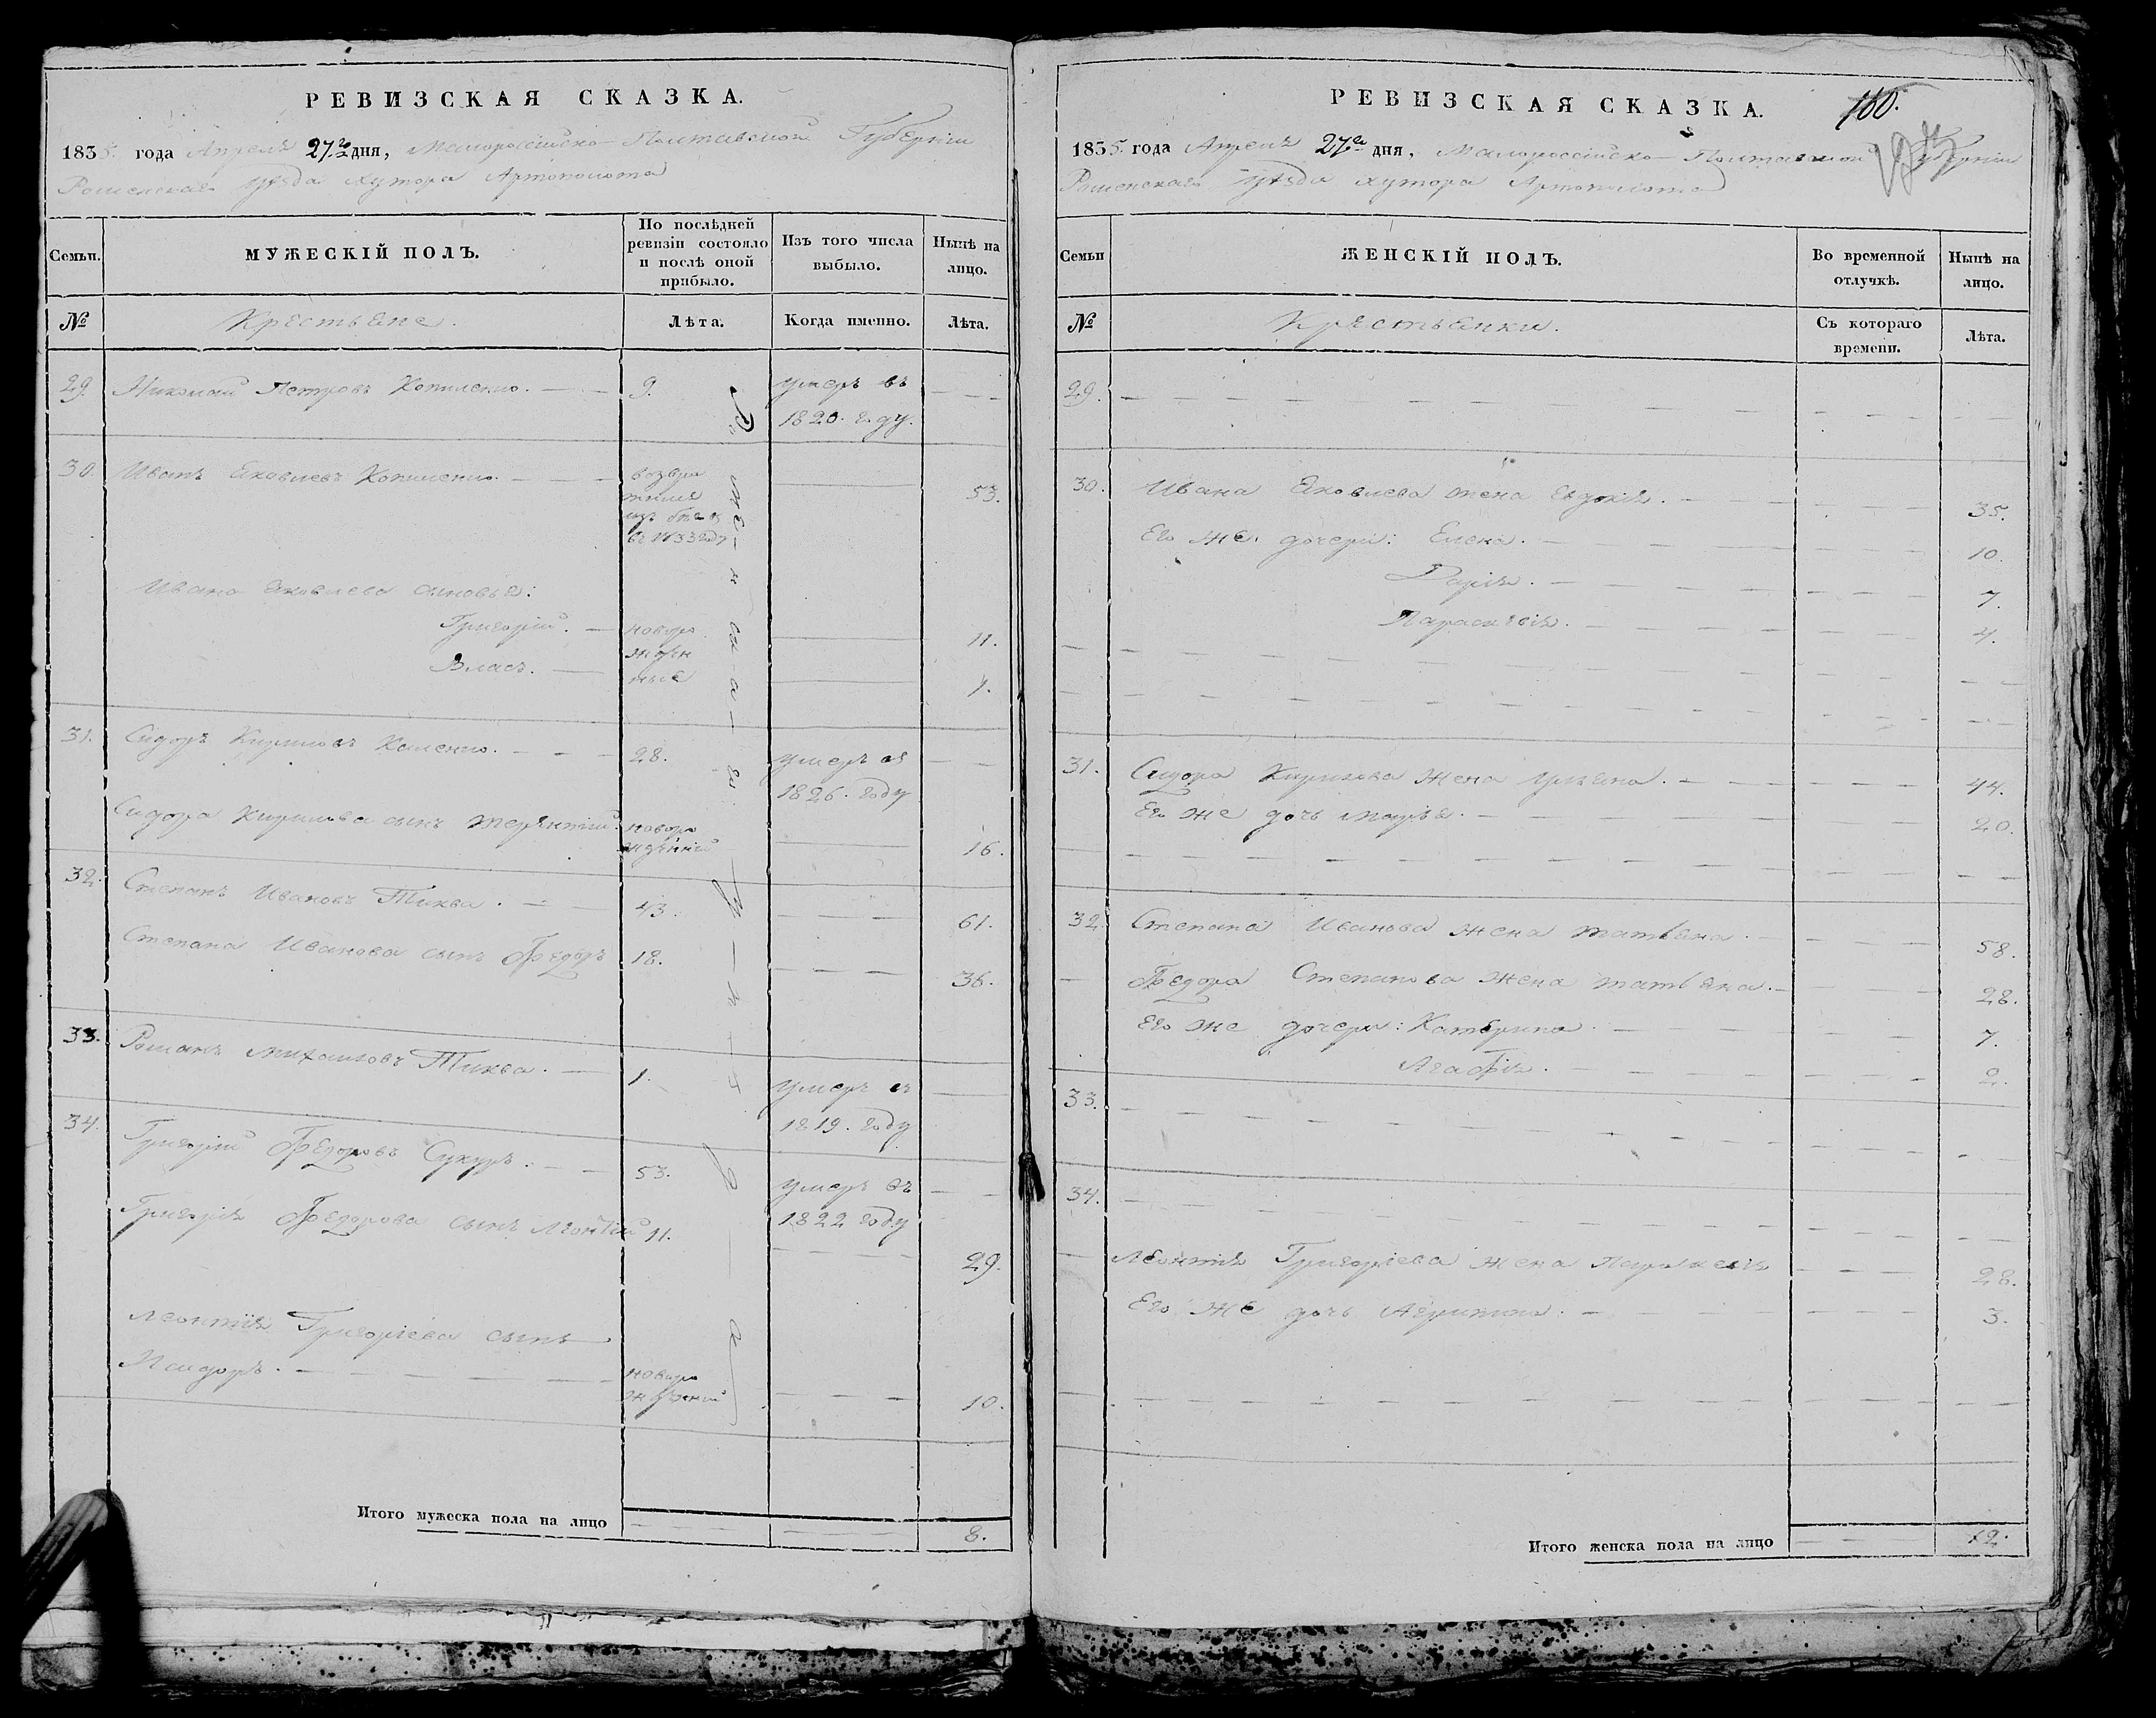 РЕВИЗСКАЯ СКАЗКА.
1835. года Апреля 27го дня, Малороссійско-Полтавской Губерніи
Роменскаго уѣзда хутора Артополота
Семьи.
МУЖЕСКІЙ ПОЛЪ.
По послѣдней ревизіи состояло и послѣ оной прибыло.
Изъ того числа выбыло.
Нынѣ на лицо.
№
Крестьяне.
Лѣта.
Когда именно.
Лѣта.
29. Николай Петровъ Копиленко. 9. умеръ въ
1820. году.
30. Иванъ Яковлевъ Копиленко. 53.
возвра
тился
изъ
въ 1833 году
Ивана Яковлева сыновья:
Григорій. новоро 11.
жден
Власъ. ные
31. Сидоръ Кириловъ 28. умеръ въ
1826. году
Сидора Кирилова сынъ Терентій новоро
жденній 16.
32. Степанъ Ивановъ Тиква. 43. 61.
Степана Иванова сынъ Федоръ 18. 36.
33. Романъ Михайловъ Тиква. 1. умеръ въ
1819. году
34. Григорій Федоровъ 53. умеръ въ
1822 году
Григорія Федорова сынъ Леонтій 11. 29.
Леонтія Григоріева сынъ
новоро
жденній 10.
Итого мужеска пола на лицо 8.
РЕВИЗСКАЯ СКАЗКА.
160.
1835. года Апреля 27го дня, Малороссійско-Полтавской Губерніи
Роменскаго уѣзда хутора Артополота
Семьи
ЖЕНСКІЙ ПОЛЪ.
Во временной отлучкѣ.
Нынѣ на лицо.
№
Крестьянки.
Съ котораго времени.
Лѣта.
29.
30. Ивана Яковлева жена Евдокія. 35.
Его же дочери: Елена. 10.
Дарія. 7.
Параскевія. 4.
31. Сидора Кирилова жена Уляна. 44.
Его же дочь Марія. 20.
32. Степана Иванова жена Татьяна. 58.
Федора Степанова жена Татьяна. 28.
Его же дочери: Катерина 7.
Агафія. 2.
33.
34.
Леонтія Григоріева жена Параскевія 28.
Его же дочь Агрипина. 3.
Итого женска пола на лицо 12.